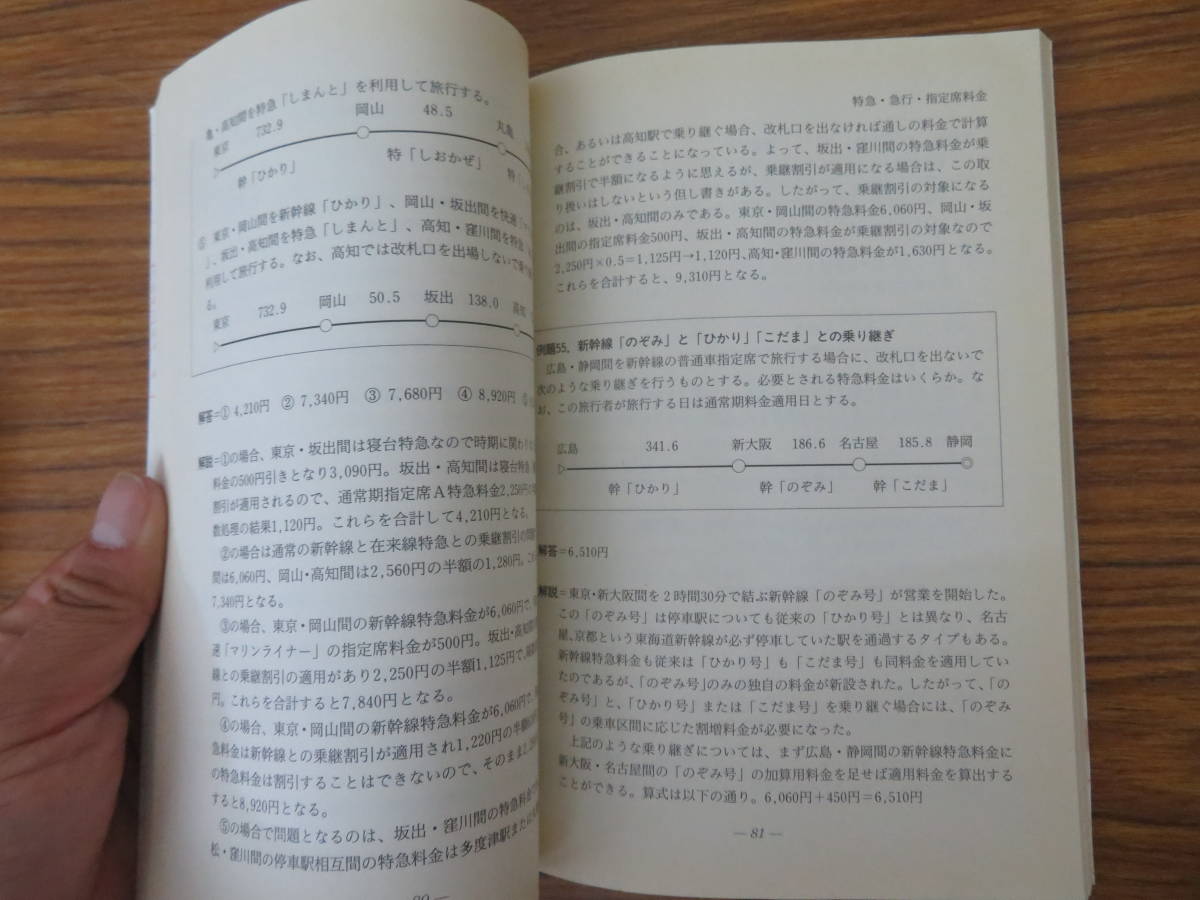 亀・高知間を特急「しまんと」を利用して旅行する。
東京 732.9 岡山 48.5 丸亀
幹「ひかり」 特「しおかぜ」 特「し
⑤ 東京・岡山間を新幹線「ひかり」、岡山・坂出間を快速「マ
」、坂出・高知間を特急「しまんと」、高知・窪川間を特急
利用して旅行する。なお、高知では改札口を出場しないで乗り
る。
東京 732.9 岡山 50.5 坂出 138.0 高知
解答=① 4,210円 ② 7,340円 ③ 7,680円 ④ 8,920円
解説=①の場合、東京・坂出間は寝台特急なので時期に関わりな
料金の500円引きとなり3,090円。坂出・高知間は寝台特急
割引が適用されるので、通常期指定席A特急料金2,250円の
数処理の結果1,120円。これらを合計して4,210円となる。
②の場合は通常の新幹線と在来線特急との乗継割引の問題
間は6,060円、岡山・高知間は2,560円の半額の1,280円。
7,340円となる。
③の場合、東京・岡山間の新幹線特急料金が6,060円で、
速「マリンライナー」の指定席料金が500円。坂出・高知間
線との乗継割引の適用があり2,250円の半額1,125円で、
円。これらを合計すると7,840円となる。
④の場合、東京・岡山間の新幹線特急料金が6,060円で、
急料金は新幹線との乗継割引が適用され1,220円の半額
の特急料金は割引することはできないので、そのまま
すると8,920円となる。
⑤の場合で問題となるのは、坂出・窪川間の特急料金
松・窪川間の停車駅相互間の特急料金は多度津駅または
特急・急行・指定席料金
合、あるいは高知駅で乗り継ぐ場合、改札口を出なければ通しの料金で計算
することができることになっている。よって、坂出・窪川間の特急料金が乗
継割引で半額になるように思えるが、乗継割引が適用になる場合は、この取
り扱いはしないという但し書きがある。したがって、乗継割引の対象になる
のは、坂出・高知間のみである。東京・岡山間の特急料金6,060円、岡山・坂
出間の指定席料金500円、坂出・高知間の特急料金が乗継割引の対象なので
2,250円×0.5＝1,125円→1,120円、高知・窪川間の特急料金が1,630円となる。
これらを合計すると、9,310円となる。
例題55. 新幹線「のぞみ」と「ひかり」「こだま」との乗り継ぎ
広島・静岡間を新幹線の普通車指定席で旅行する場合に、改札口を出ないで
次のような乗り継ぎを行うものとする。必要とされる特急料金はいくらか。な
お、この旅行者が旅行する日は通常期料金適用日とする。
広島 341.6 新大阪 186.6 名古屋 185.8 静岡
幹「ひかり」 幹「のぞみ」 幹「こだま」
解答=6,510円
解説=東京・新大阪間を2時間30分で結ぶ新幹線「のぞみ号」が営業を開始した。
この「のぞみ号」は停車駅についても従来の「ひかり号」とは異なり、名古
屋、京都という東海道新幹線が必ず停車していた駅を通過するタイプもある。
新幹線特急料金も従来は「ひかり号」も「こだま号」も同料金を適用してい
たのであるが、「のぞみ号」のみの独自の料金が新設された。したがって、「の
ぞみ号」と、「ひかり号」または「こだま号」を乗り継ぐ場合には、「のぞみ
号」の乗車区間に応じた割増料金が必要になった。
上記のような乗り継ぎについては、まず広島・静岡間の新幹線特急料金に
新大阪・名古屋間の「のぞみ号」の加算用料金を足せば適用料金を算出する
ことができる。算式は以下の通り。6,060円＋450円＝6,510円
— 81 —